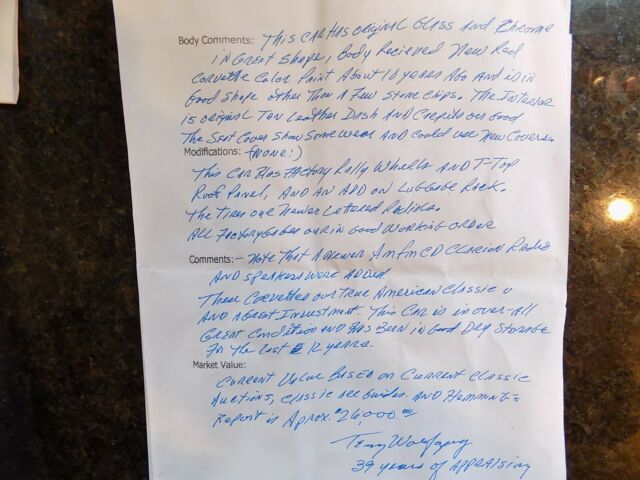 Body Comments: This car has original glass and chrome
in great shape, Body Recieved New Red
Corvette Color Paint About 10 years Ago and is in
Good shape other than a Few stone chips. The Interior
is original Tan Leather Dash and Carpets are Good
The Seat Cover show some wear and could use New Covers.
Modifications: (none:)
This Car Has Factory Rally Wheels and T-Top
Roof Panel, and an add on Luggage Rack.
The tires are newer Lettered Radials.
All Factory Gages are in Good Working order
Comments:- Note that a newer Am Fm CD Clarion Radio
and speakers were added
These Corvettes are true American Classic
and a Great Investment. This Car is in over-all
Great Condition and Has Been in Good Dry Storage
For the last 12 years.
Market Value:
Current Value Based on Current Classic
Auctions, Classic Guides. and Hemmings
Report is Aprox. $26,000.00
Terry Wolfgang
39 years of Appraising